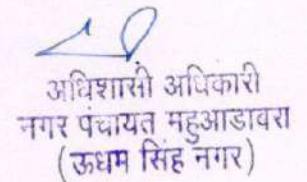 अधिशासी अधिकारी
नगर पंचायत महुआडावरा
(ऊधम सिंह नगर)